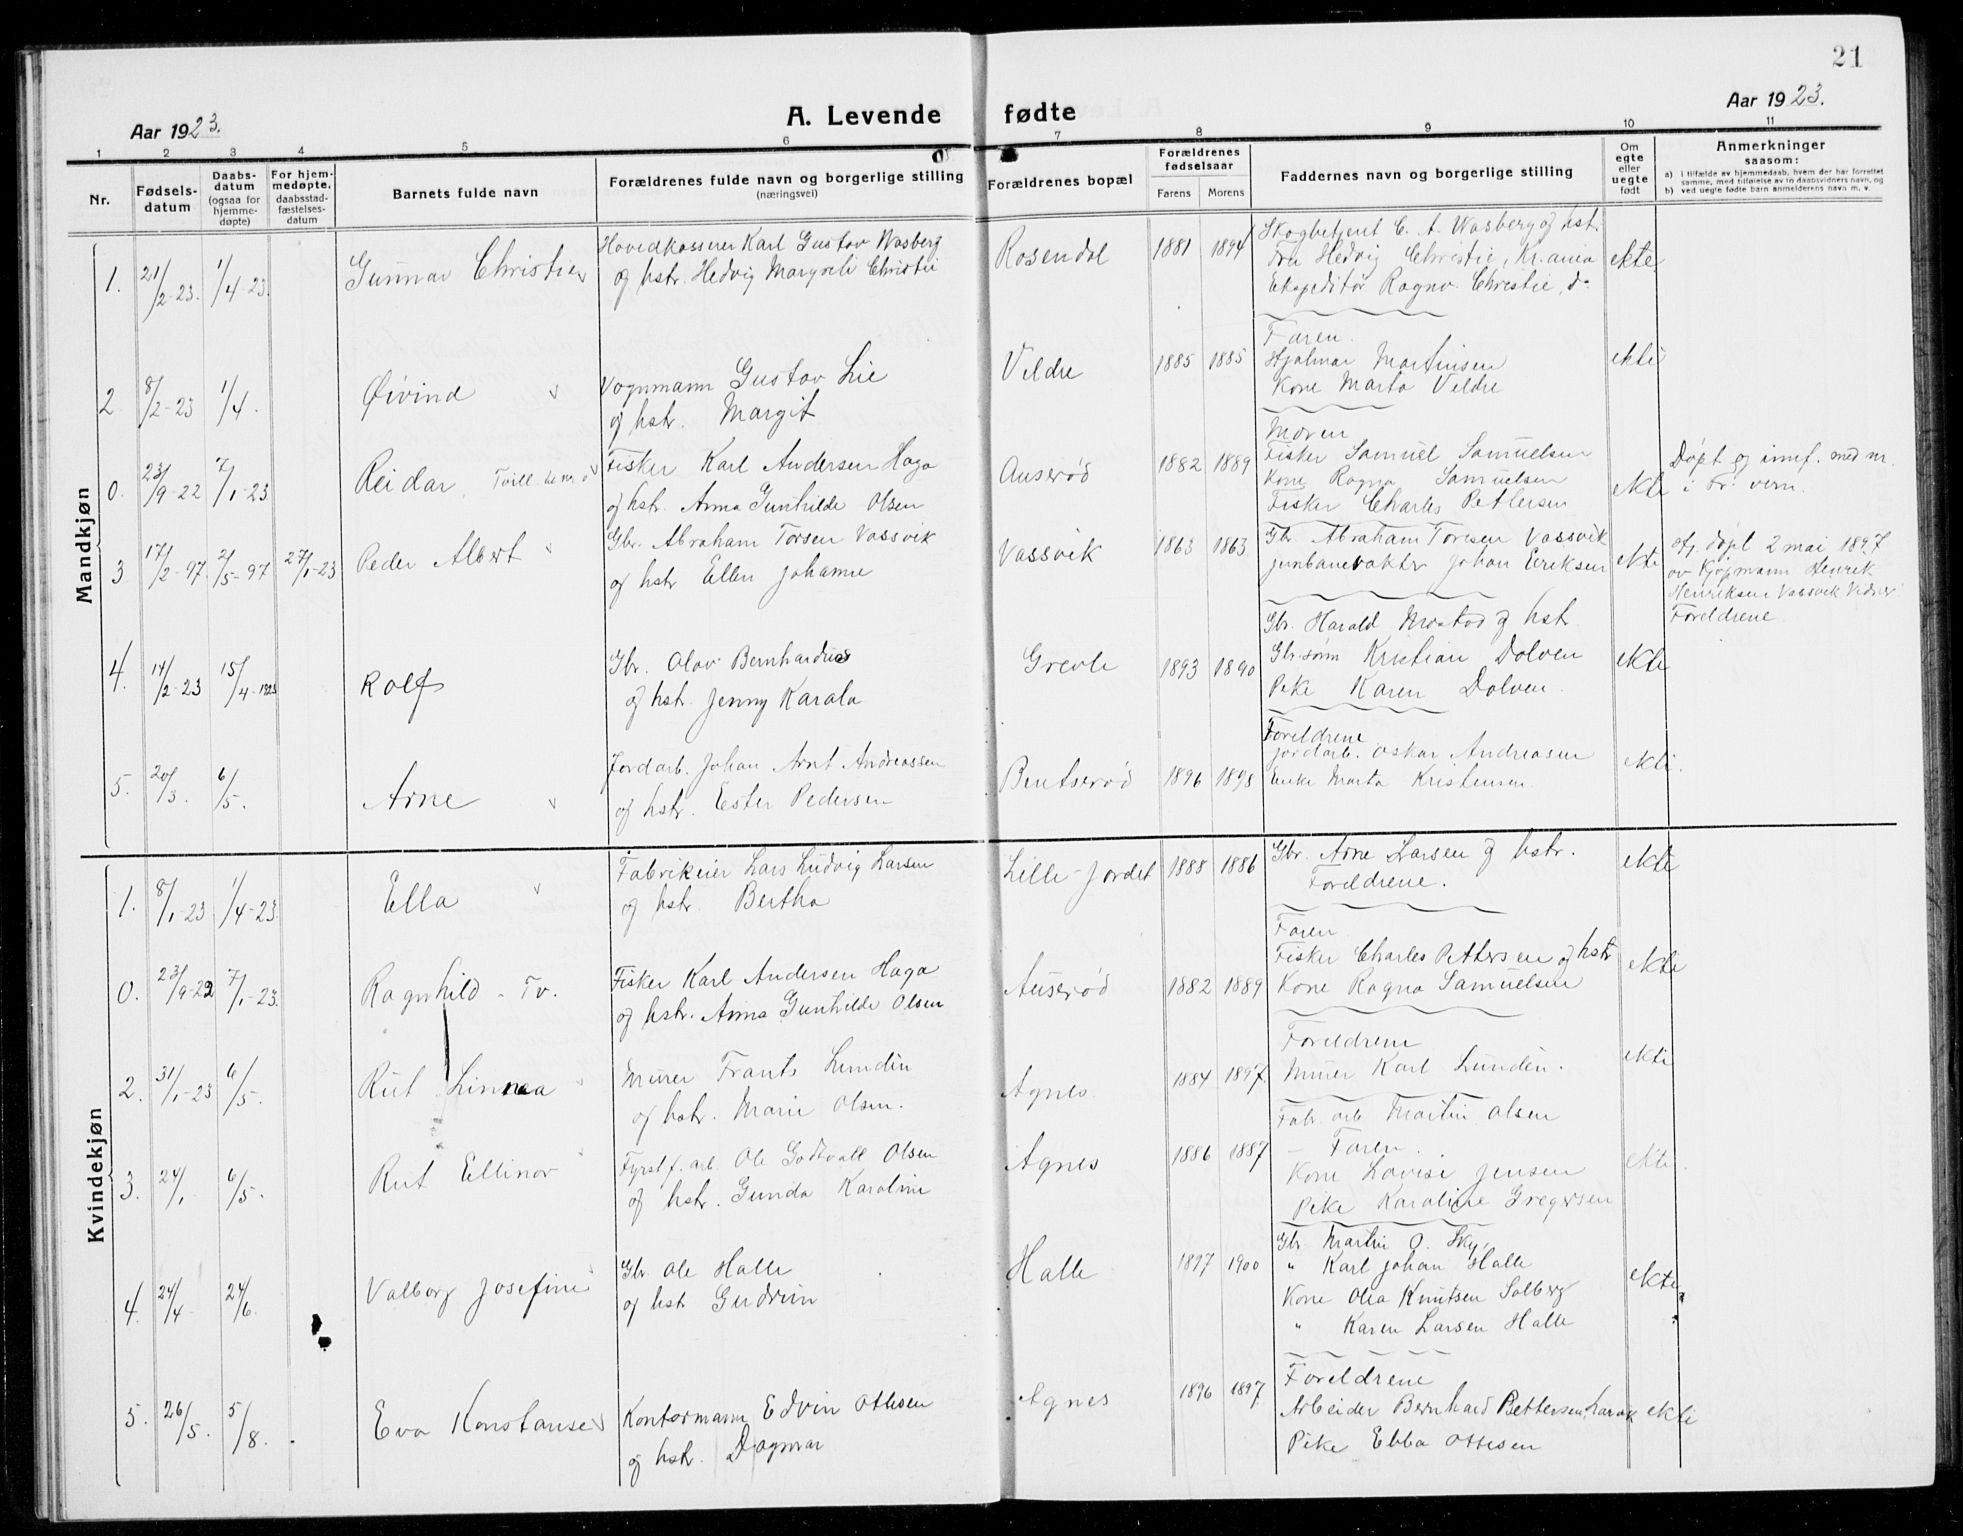 21
Aar 1923.
A. Levende fødte
Aar 1923.
1 2 3 4 5 6 7 8 9 10 11
Nr.
Fødsels-datum
Daabs-datum (ogsaa for hjemme-døpte)
For hjem-medøpte. daabsstad-fæstelses-datum
Barnets fulde navn
Forældrenes fulde navn og borgerlige stilling
(næringsvei)
Forældrenes bopæl
Forældrenes fødselsaar
Farens Morens
Faddernes navn og borgerlige stilling
Om egte eller uegte født
Anmerkninger
saasom:
a) i tilfælde av hjemmedaab, hvem der har forrettet samme, med tilføielse av to daabsvidners navn, og
b) ved uegte fødte barn anmelderens navn m. v.
Mandkjøn
1. 21/2-23. 1/4-23. Gunnar Christie
Hovedkasserer Karl Gustav Wasberg
og hstr. Hedvig Margrethe Christie
Rosendal 1881 1894
Skogbetjent C. A. Wasberg og hst.
Fru Hedvig Christie, Kr.ania
Ekspeditør Ragnv. Christie, do
ekte
2 8/2-23 1/4. Øivind
Vognmann Gustav Lie
og hstr. Margit
Veldre 1885 1885
Faren.
Hjalmar Martinsen
Kone Marta Veldre
ekte
0. 23/9-22 7/1-23 Reidar, Tvill.
Fisker Karl Andersen Haga
og hstr. Anna Gunhilde Olsen
Auserød 1882 1889
Moren
Fisker Samuel Samuelsen
Kone Ragna Samuelsen
Fisker Charles Pettersen
ekte
Døpt og innf. med nr.
i Fr. vern.
3 17/2-97. 2/5-97 27/1-23 Peder Albert
Gbr. Abraham Torsen Vassvik
og hstr Ellen Johanne
Vassvik 1863 1863
Gbr. Abraham Toresen Vassvik
junbanevakter Johan Eriksen
ekte
Hj. døpt 2 mai 1897
av Kjøpmann Henrik
Henriksen Vassvik Vidner
Foreldrene
4. 14/2-23 15/4-1923 Rolf
Gbr. Olav Bernhardus
og hstr. Jenny Karala
Grevle 1893 1890
Gbr. Harald Mostad og hstr
Gbr.sønn Kristian Dolven
Pike Karen Dolven.
ekte
5. 20/3. 6/5. Arne
Jordarb. Johan Arnt Andreassen
og hstr. Ester Pedersen
Bentserød 1896 1898
Foreldrene
Jordarb. Oskar Andreasen
Enke Marta Kristensen.
ekte.
Kvindekjøn
1. 8/1-23 1/4-23. Ella
Fabrikeier Lars Ludvig Larsen
og hstr. Bertha
Lille-Jordet 1888 1886
Gbr. Arne Larsen og hstr.
Foreldrene.
ekte
0. 23/9-22 7/1-23. Ragnhild - Tv.
Fisker Karl Andersen Haga
og hstr. Anna Gunhilde Olsen
Auserød 1882 1889
Faren
Fisker Charles Pettersen og hstr
Kone Ragna Samuelsen
ekte
2. 31/1-23 6/5. Rut Linnea
Murer Frants Lundin
og hstr. Marie Olsen.
Agnes 1884 1897.
Foreldrene
Murer Karl Lundin.
ekte
3. 24/1 6/5. Rut Ellinor
Fyrst.f. arb. Ole Godtvall Olsen
og hstr. Gunda Karoline
Agnes 1886 1887
Fabr. arb Martin Olsen
- Faren.
Kone Lovise Jensen
Pike Karoline Gregersen
ekte.
4. 24/4 24/6. Valborg Josefine
Gbr. Ole Halle
og hstr Gudrun
Halle 1897 1900
Gbr Martin O. Sky,
" Karl Johan Halle
Kone Olea Knutsen Solberg
" Karen Larsen Halle
ekte.
5. 26/5. 5/8. Eva Konstanse
Kontormann Edvin Ottesen
og hstr. Dagmar
Agnes 1896 1897.
Foreldrene
Arbeider Bernhard Pettersen, Larvik
Pike Ebba Ottesen
ekte